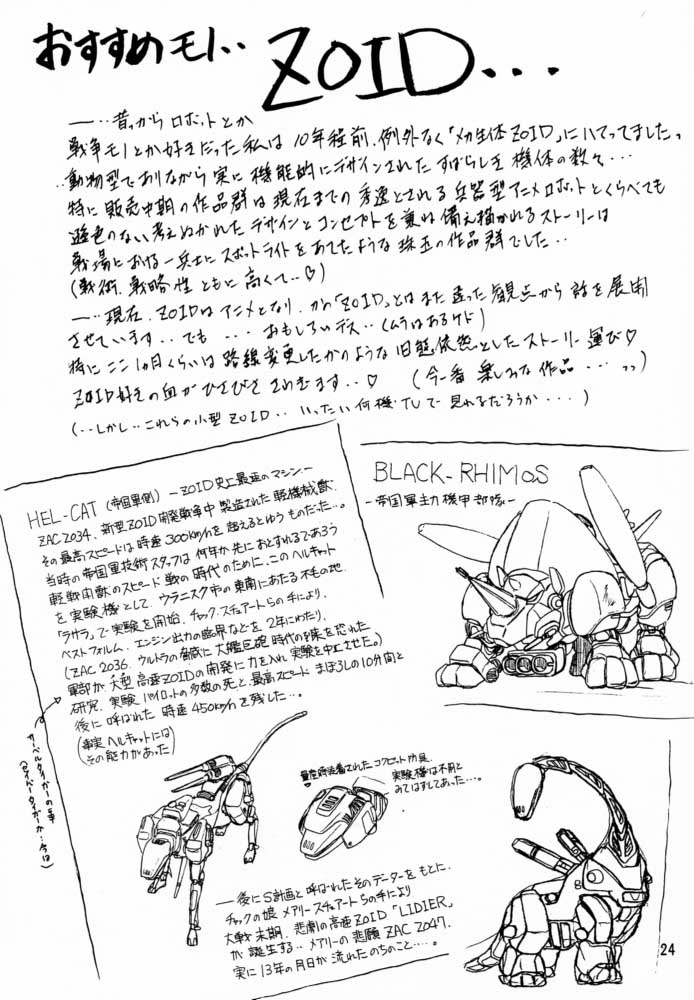 おすすめモノ‥ ZOID...
―‥昔っからロボットとか
戦争モノとか好きだった私は10年程前、例外なく「メカ生体ZOID」にハマってましたっ
‥動物型でありながら実に機能的にデザインされたすばらしき機体の数々…
特に販売中期の作品群は現在までの秀逸とされる兵器型アニメロボットとくらべても
遜色のない考えぬかれたデザインとコンセプトを兼ね備え描かれるストーリーは
戦場における一兵士にスポットライトをあてたような珠玉の作品群でした‥
(戦術、戦略性ともに高くて‥♡)
―‥現在、ZOIDはアニメとなり、かの「ZOID」とはまた違った観点から話を展開
させています‥でも …おもしろいデス‥(ムラはあるケド)
特にここ1ヵ月くらいは路線変更したかのような旧態依然としたストーリー運び♡
ZOID好きの血がひさびささわぎます‥♡ (今一番楽しみな作品…っっ)
(‥しかし‥これらの小型ZOID‥いったい何機TVで見れるだろうか…)
HEL-CAT (帝国軍側) ―ZOID史上最速のマシン―
ZAC2034、新型ZOID開発戦争中製造された軽機械獣、
その最高スピードは時速300km/hを超えるとゆうものだった…。
当時の帝国軍技術スタッフは何年か先におとずれるであろう
軽戦闘獣のスピード戦の時代のために、このヘルキャット
を実験機として、ウラニスク市の東南にあたる不毛の地、
「ラサラ」で実験を開始、チャック・スチュアートらの手により、
ベストフォルム、エンジン出力の臨界などを2年にわたり、
(ZAC2036、ウルトラの脅威に大艦巨砲時代の到来を恐れた
軍部が、大型高速ZOIDの開発に力を入れ実験を中止させた。)
研究、実験パイロットの多数の死と、最高スピードまぼろしの10分間と
後に呼ばれた時速450km/hを残した…。
(事実ヘルキャットには
その能力があった)
サーベルタイガーの事
(セイバータイガーか…今は)
BLACK-RHIMOS
―帝国軍主力機甲部隊―
量産時装着されたコクピット防具、
実験機は不用と
みてはずしてあった…。
―後にS計画と呼ばれたそのデーターをもとに、
チャックの娘メアリースチュアートらの手により
大戦末期、悲劇の高速ZOID「LIDIER」
が誕生する‥メアリーの悲願ZAC2047、
実に13年の月日が流れたのちのこと…。
24